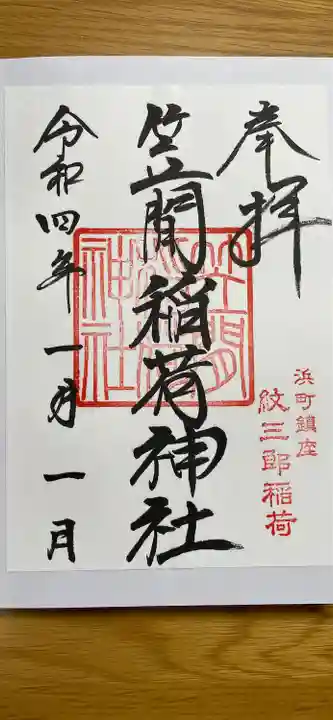 奉拝
浜町鎮座
紋三郎稲荷
笠間稲荷神社
笠間稲荷神社
令和四年一月一日